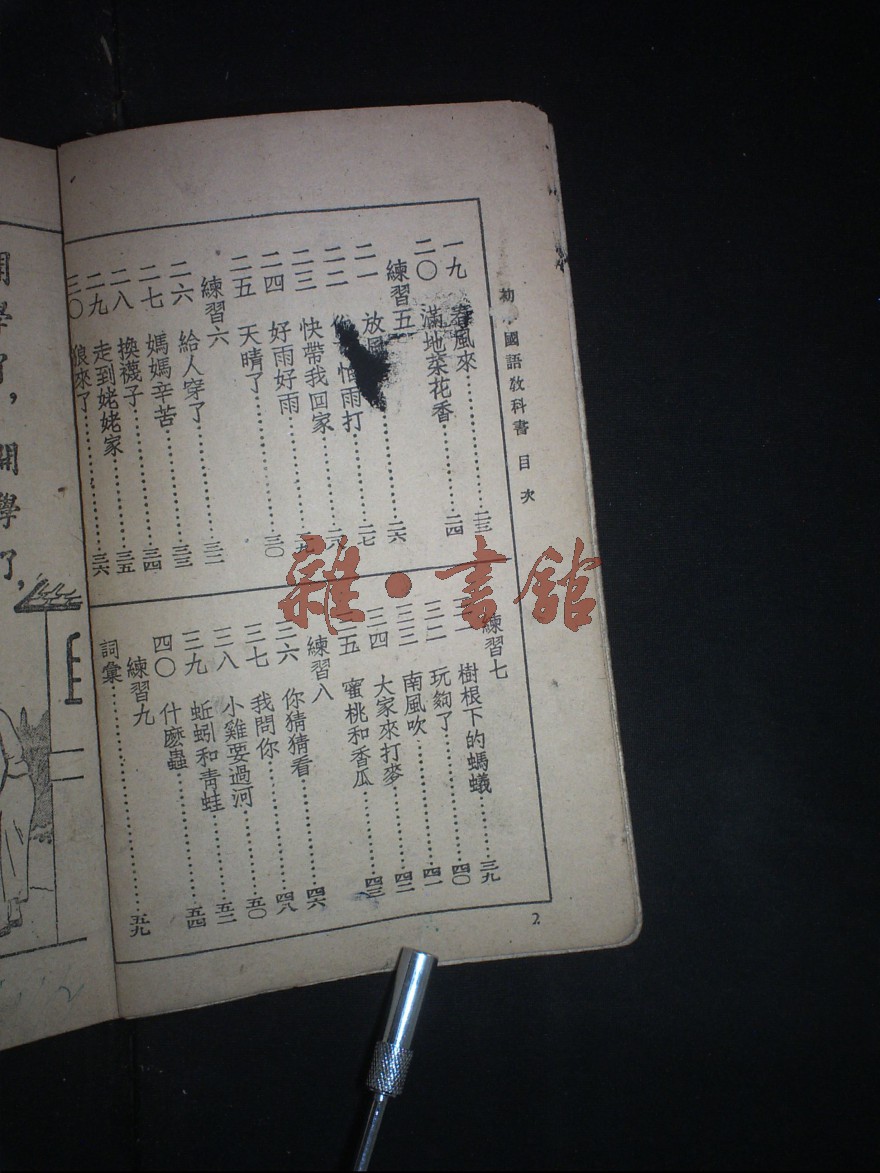 國語敎科書 目次
一九 春風來……二三
二〇 滿地菜花香……二四
練習五……二六
二一 放……二七
二二 怕雨打……二八
二三 快帶我回家……二九
二四 好雨好雨……三〇
二五 天晴了
練習六……三二
二六 給人穿了……三三
二七 媽媽辛苦……三四
二八 換襪子……三五
二九 走到姥姥家……三六
三〇 狼來了
練習七……三九
樹根下的螞蟻……四〇
三二 玩夠了……四一
三三 南風吹……四二
三四 大家來打麥……四三
三五 蜜桃和香瓜
練習八……四六
三六 你猜猜看……四八
三七 我問你……五〇
三八 小雞要過河……五二
三九 蚯蚓和靑蛙……五四
四〇 什麼蟲
練習九……五九
詞彙
2
開學了，開學了，
雜·書館